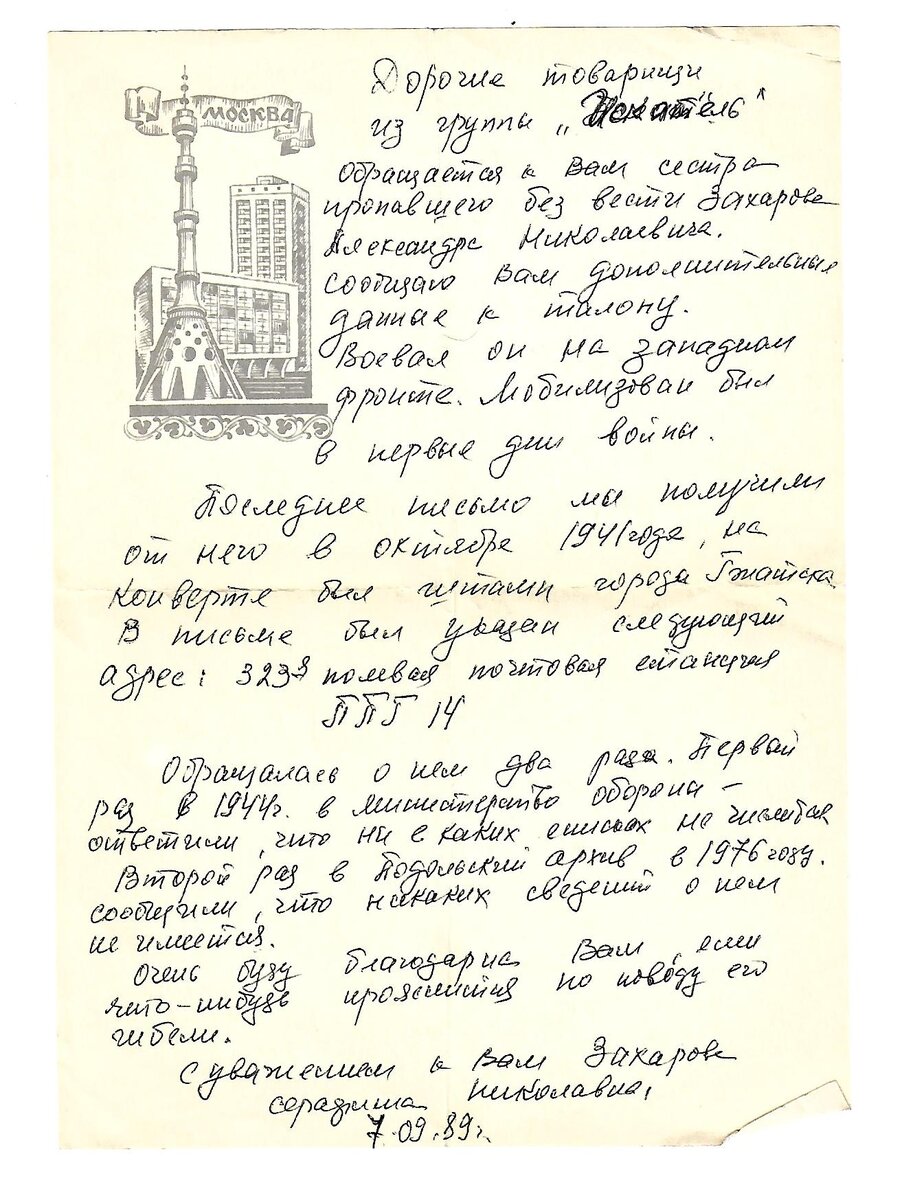 МОСКВА
Дорогие товарищи
из группы „Искатель"
обращается к Вам сестра
пропавшего без вести Захарова
Александра Николаевича.
Сообщаю Вам дополнительные
данные к талону.
Воевал он на западном
фронте. Мобилизован был
в первые дни войны.
Последнее письмо мы получили
от него в октябре 1941 года, на
конверте был штамп города Гжатска
В письме был указан следующий
адрес: 323я полевая почтовая станция
ППГ 14
Обращалась о нем два раза. Первый
раз в 1944г. в министерство оборона –
ответили, что ни в каких списках не числится
Второй раз в Подольский архив в 1976 году.
сообщили, что никаких сведений о нем
не имеется.
Очень буду благодарна Вам, если
что-нибудь прояснится по поводу его
гибели.
С уважением к Вам Захарова
Серафима Николавна,
7.09.89г.